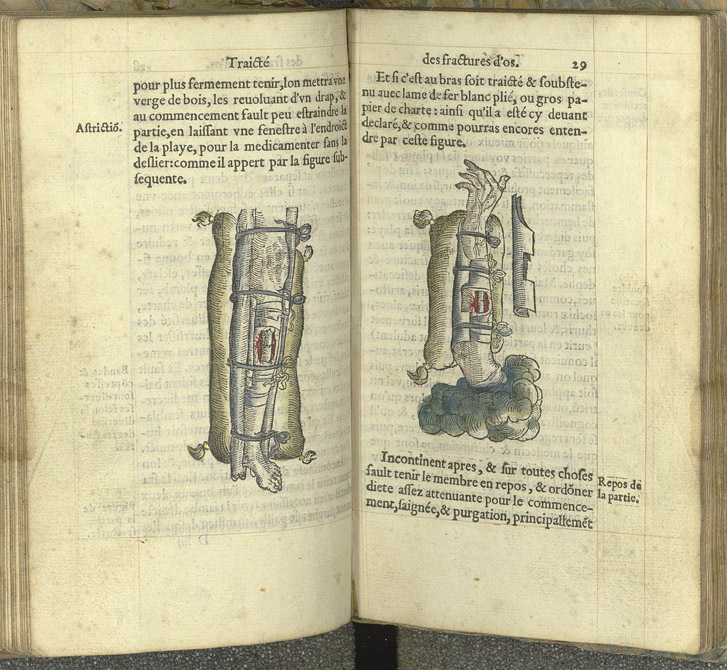 Traicté
pour plus fermement tenir, lon mettra vne
verge de bois, les reuoluant d'vn drap, &
au commencement fault peu estraindre la
Astrictiõ.
partie, en laissant vne fenestre à l'endroict
de la playe, pour la medicamenter sans la
deslier: comme il appert par la figure sub-
sequente.
des fractures d'os.
29
Et si c'est au bras soit traicté & soubste-
nu auec lame de fer blanc plié, ou gros pa-
pier de charte: ainsi qu'il a esté cy deuant
declaré, & comme pourras encores enten-
dre par ceste figure.
Incontinent apres, & sur toutes choses
Repos de
fault tenir le membre en repos, & ordõner
la partie.
diete assez attenuante pour le commence-
ment, saignée, & purgation, principallemẽt